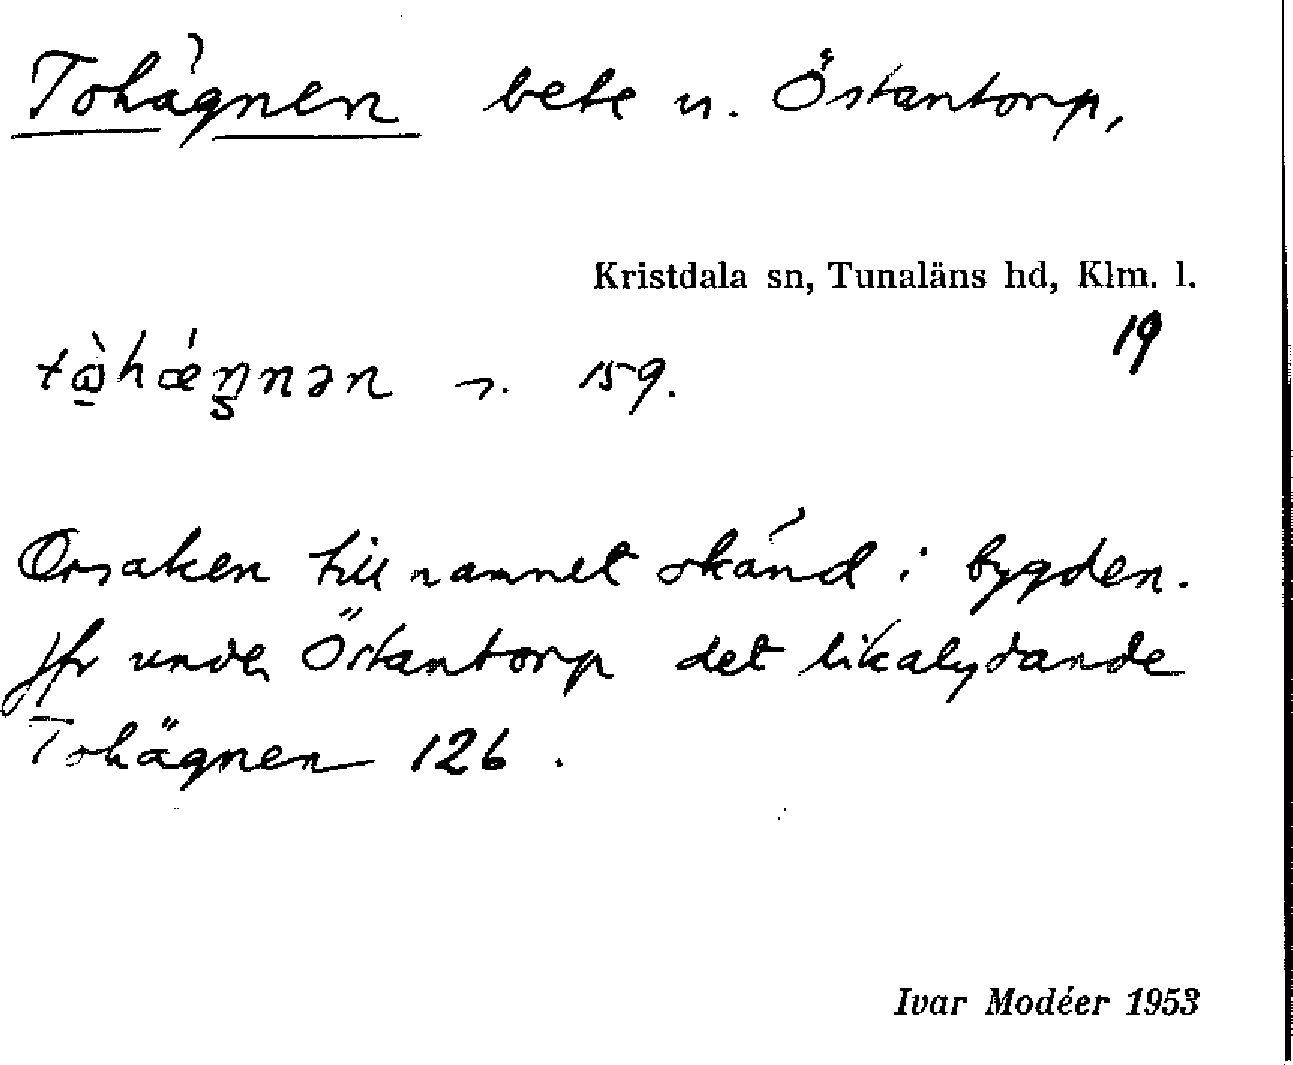 Tohägnen bete u. Östantorp,
Kristdala sn, Tunaläns hd, Klm. l.
19
159.
Orsaken till namnet okänd i bygden.
Jfr under Östantorp det likalydande
Tohägnen 126.
Ivar Modéer 1953